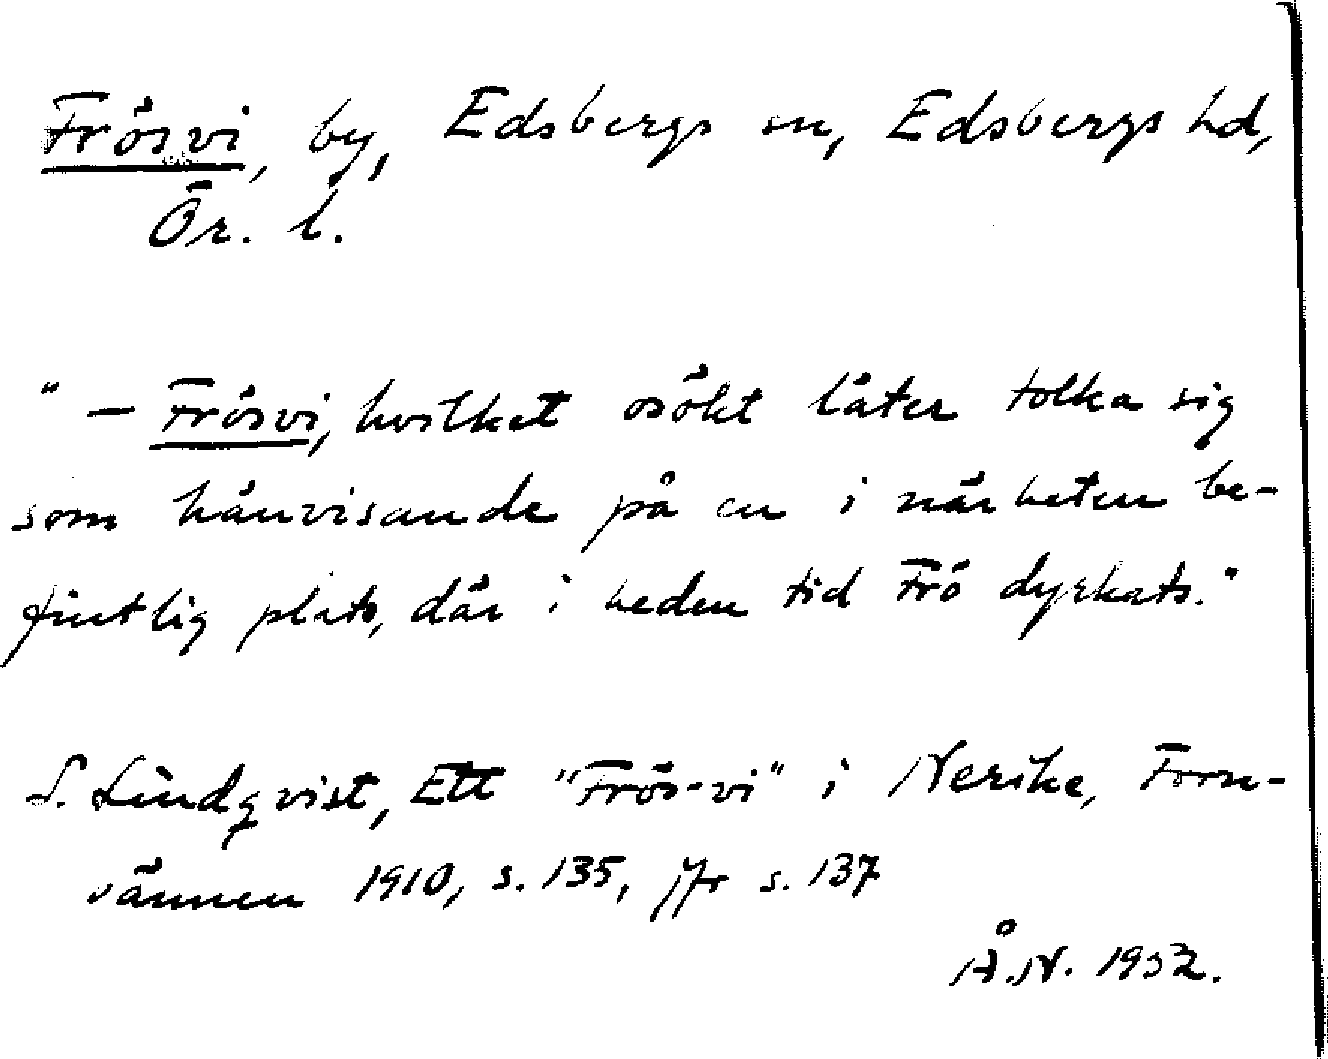 Frösvi, by, Edsbergs sn, Edsbergs hd,
Ör. l.
" – Frösvi, hvilket osökt låter tolka sig
som hänvisande på en i närheten be-
fintlig plats, där i heden tid Frö dyrkats."
S. Lindqvist, Ett "Frös-vi" i Nerike, Forn-
vännen 1910, s. 135, jfr s. 137
Å.N. 1932.